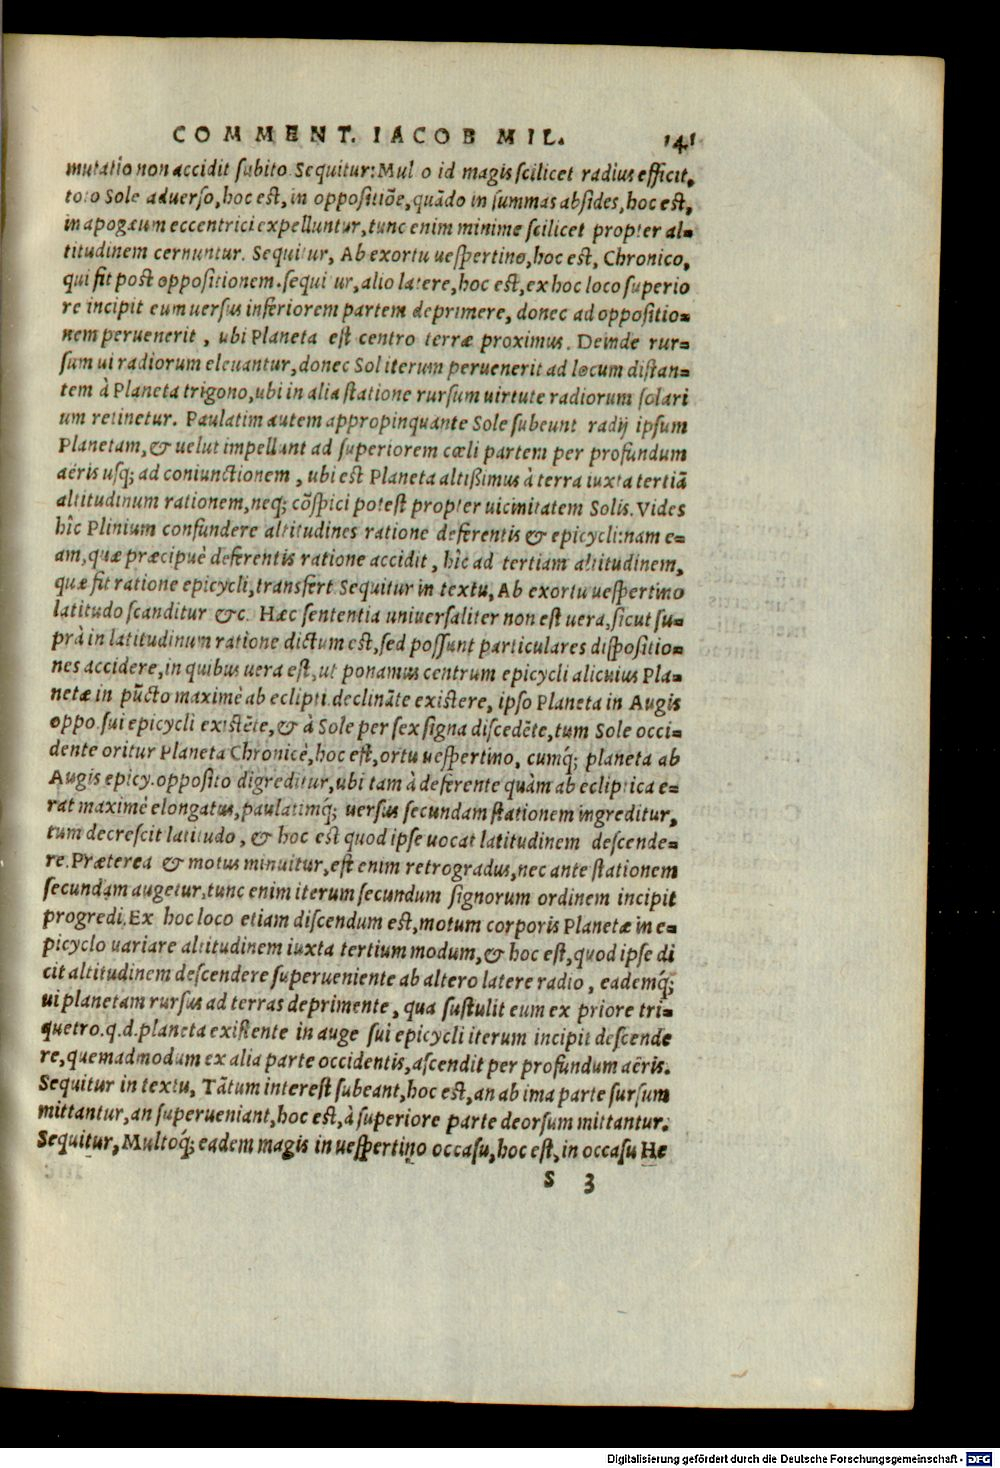 COMMENT. IACOB MIL. 141
mutatio non accidit subito. Sequitur: Mul o id magis scilicet radius efficit,
toto Sole aduerso, hoc est, in oppositiõe, quãdo in summas absides, hoc est,
in apogæum eccentrici expelluntur, tunc enim minime scilicet propter al=
titudinem cernuntur. Sequitur, Ab exortu uespertino, hoc est, Chronico,
qui fit post oppositionem. sequi ur, alio latere, hoc est, ex hoc loco superio
re incipit eum uersus inferiorem partem deprimere, donec ad oppositio=
nem peruenerit, ubi Planeta est centro terræ proximus. Deinde rur=
sum ui radiorum eleuantur, donec Sol iterum peruenerit ad locum distan=
tem à Planeta trigono, ubi in alia statione rursum uirtute radiorum solari
um retinetur. Paulatim autem appropinquante Sole subeunt radij ipsum
Planetam, & uelut impellunt ad superiorem cœli partem per profundum
aëris usq; ad coniunctionem, ubi est Planeta altißimus à terra iuxta tertiã
altitudinum rationem, neq; cõspici potest propter uicinitatem Solis. Vides
hîc Plinium confundere altitudines ratione deferentis & epicycli: nam e=
am, quæ præcipuè deferentis ratione accidit, hîc ad tertiam altitudinem,
quæ fit ratione epicycli, transfert. Sequitur in textu, Ab exortu uespertino
latitudo scanditur &c. Hæc sententia uniuersaliter non est uera, sicut su=
prà in latitudinum ratione dictum est, sed possunt particulares dispositio=
nes accidere, in quibus uera est, ut ponamus centrum epicycli alicuius Pla=
netæ in pũcto maximè ab eclipti. declinãte existere, ipso Planeta in Augis
oppo. sui epicycli existẽte, & à Sole per sex signa discedẽte, tum Sole occi=
dente oritur Planeta Chronicè, hoc est, ortu uespertino, cumq́; planeta ab
Augis epicy. opposito digreditur, ubi tam à deferente quàm ab ecliptica e=
rat maximè elongatus, paulatimq́; uersus secundam stationem ingreditur,
tum decrescit latitudo, & hoc est quod ipse uocat latitudinem descende=
re. Præterea & motus minuitur, est enim retrogradus, nec ante stationem
secundam augetur, tunc enim iterum secundum signorum ordinem incipit
progredi. Ex hoc loco etiam discendum est, motum corporis Planetæ in e=
picyclo uariare altitudinem iuxta tertium modum, & hoc est, quod ipse di
cit altitudinem descendere superueniente ab altero latere radio, eademq́;
ui planetam rursus ad terras deprimente, qua sustulit eum ex priore tri=
quetro. q.d. planeta existente in auge sui epicycli iterum incipit descende
re, quemadmodum ex alia parte occidentis, ascendit per profundum aëris.
Sequitur in textu, Tãtum interest subeant, hoc est, an ab ima parte sursum
mittantur, an superueniant, hoc est, à superiore parte deorsum mittantur.
Sequitur, Multoq́; eadem magis in uespertino occasu, hoc est, in occasu He
S 3
Digitalisierung gefördert durch die Deutsche Forschungsgemeinschaft - DFG